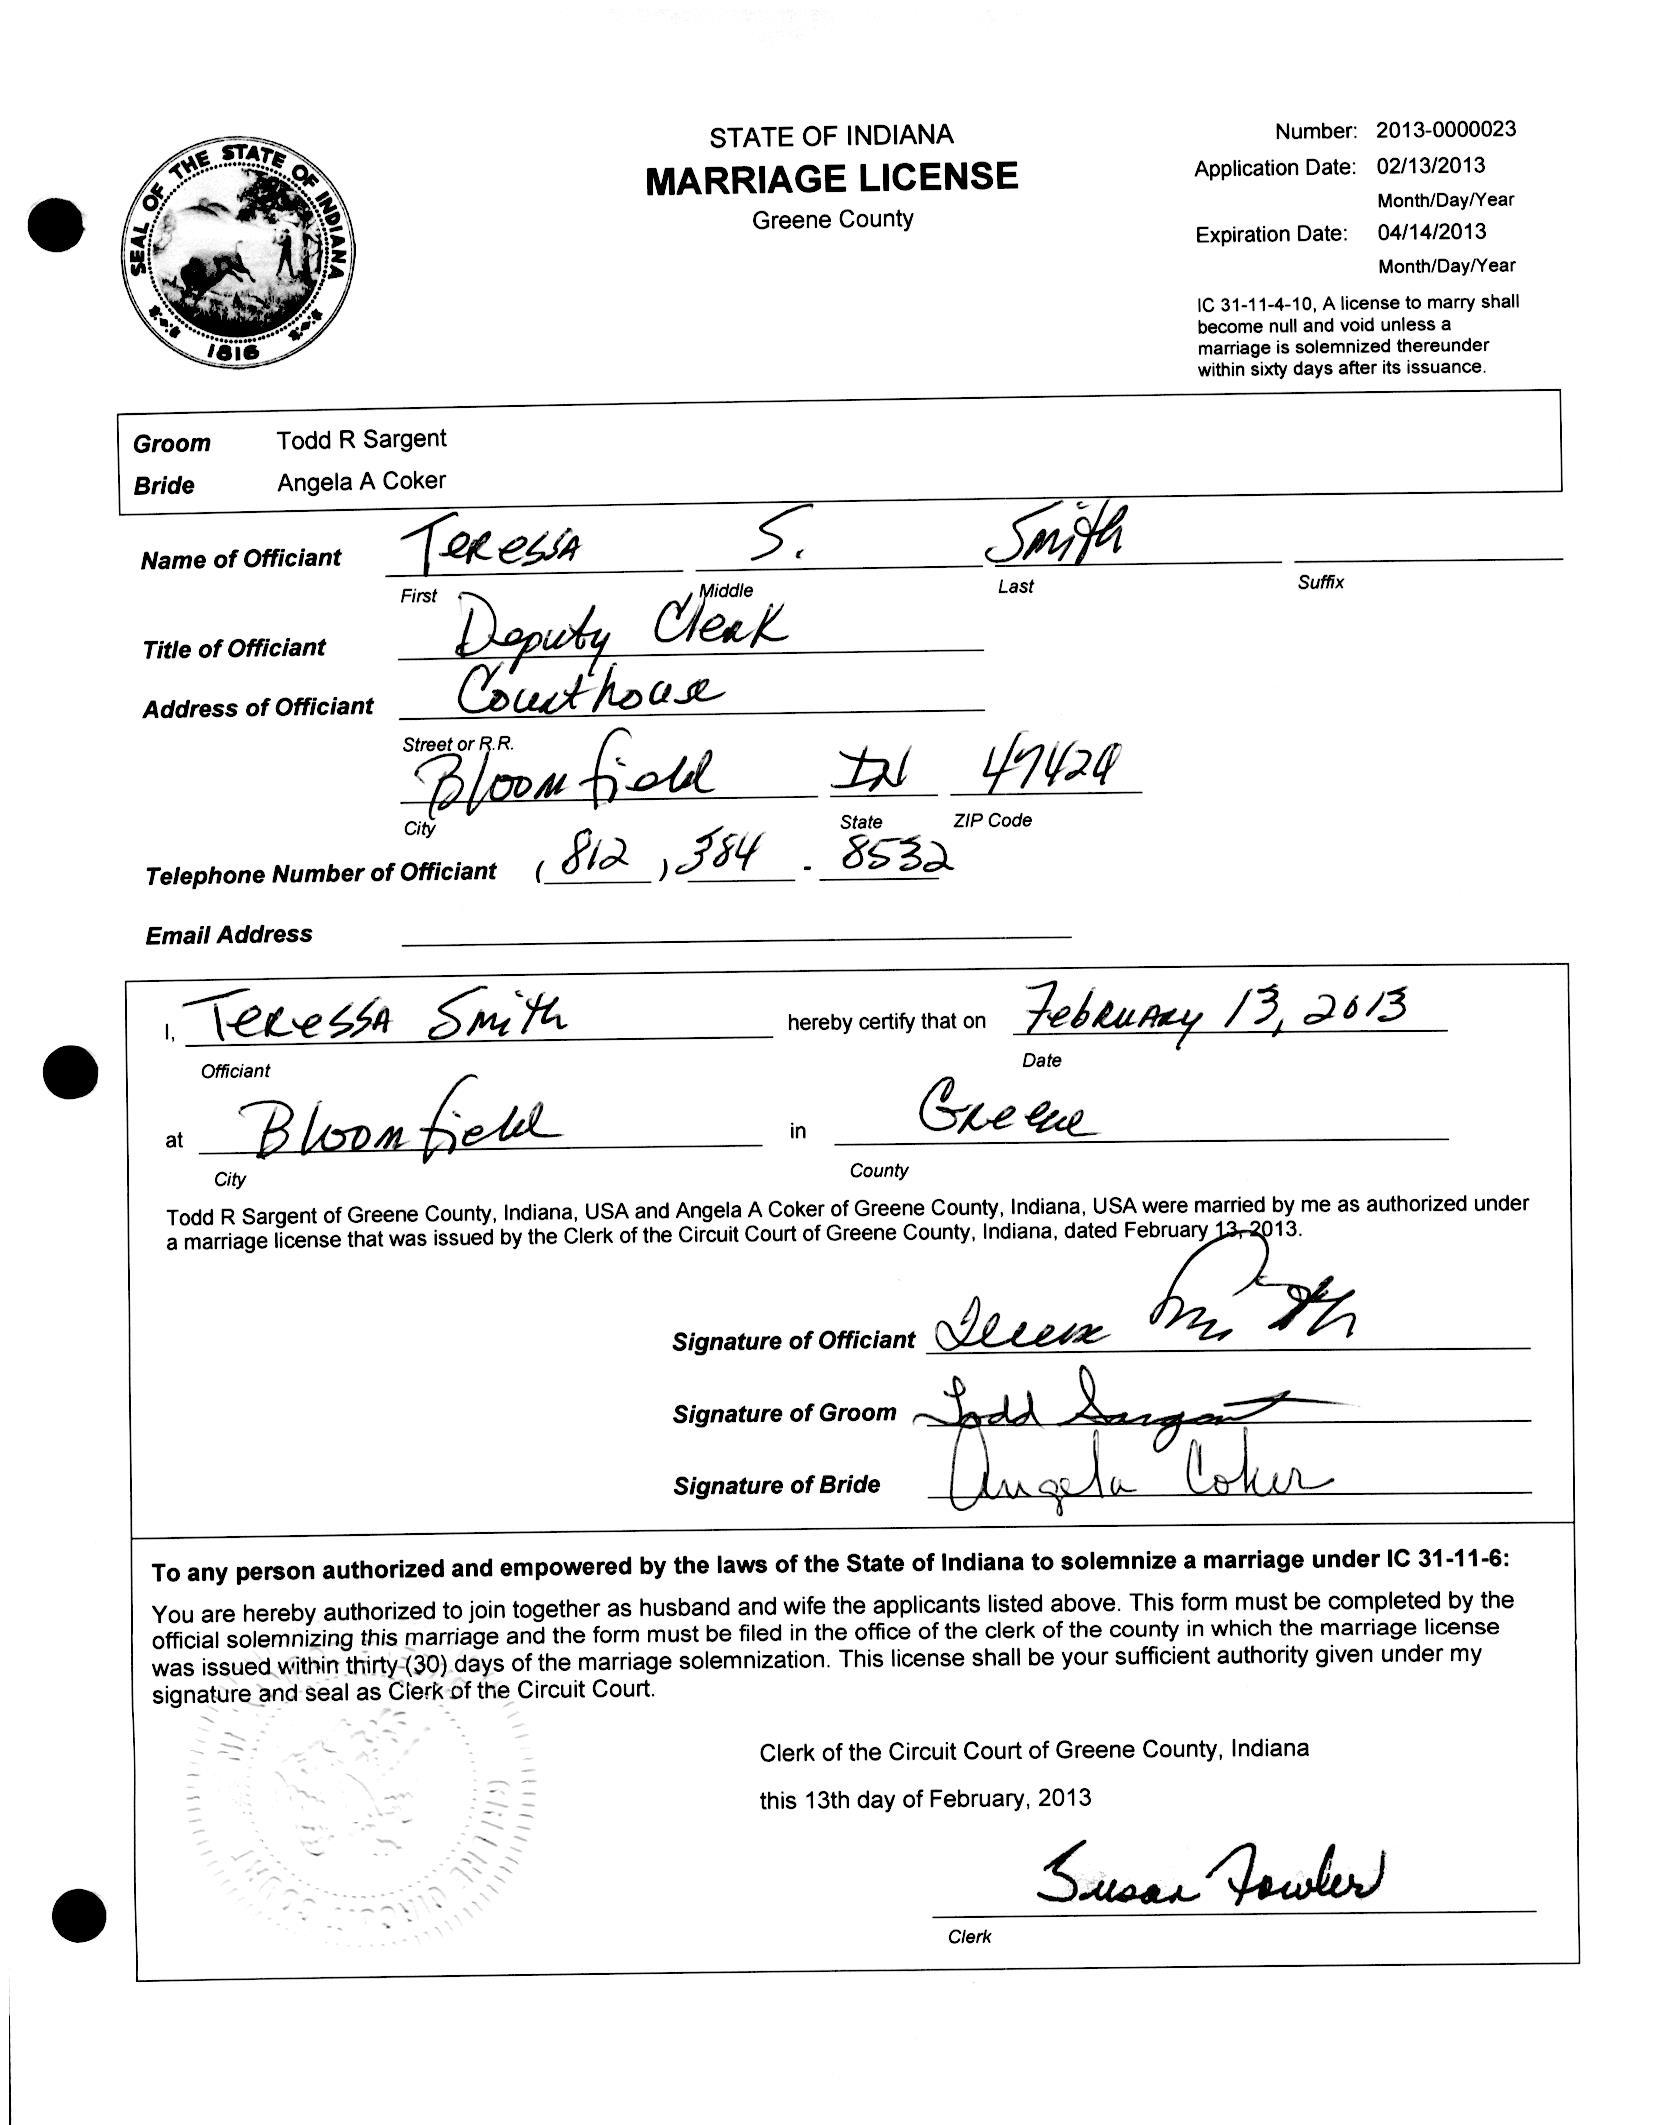 SEAL OF THE STATE OF INDIANA
1816
STATE OF INDIANA
MARRIAGE LICENSE
Greene County
Number: 2013-0000023
Application Date: 02/13/2013
Month/Day/Year
Expiration Date: 04/14/2013
Month/Day/Year
IC 31-11-4-10, A license to marry shall
become null and void unless a
marriage is solemnized thereunder
within sixty days after its issuance.
Groom Todd R Sargent
Bride Angela A Coker
Name of Officiant Teressa S. Smith
First Middle Last Suffix
Title of Officiant Deputy Clerk
Address of Officiant Courthouse
Street or R.R.
Bloomfield IN 47424
City State ZIP Code
Telephone Number of Officiant (812) 384 - 8532
Email Address
I, Teressa Smith hereby certify that on February 13, 2013
Officiant Date
at Bloomfield in Greene
City County
Todd R Sargent of Greene County, Indiana, USA and Angela A Coker of Greene County, Indiana, USA were married by me as authorized under
a marriage license that was issued by the Clerk of the Circuit Court of Greene County, Indiana, dated February 13, 2013.
Signature of Officiant Teressa Smith
Signature of Groom Todd Sargent
Signature of Bride Angela Coker
To any person authorized and empowered by the laws of the State of Indiana to solemnize a marriage under IC 31-11-6:
You are hereby authorized to join together as husband and wife the applicants listed above. This form must be completed by the
official solemnizing this marriage and the form must be filed in the office of the clerk of the county in which the marriage license
was issued within thirty (30) days of the marriage solemnization. This license shall be your sufficient authority given under my
signature and seal as Clerk of the Circuit Court.
Clerk of the Circuit Court of Greene County, Indiana
this 13th day of February, 2013
Susan Fowler
Clerk